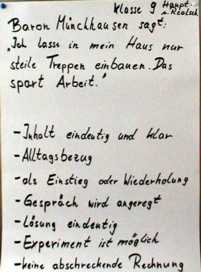 Klasse 9 Haupt-
u. Realsch.
Baron Münchhausen sagt:
"Ich lasse in mein Haus nur
steile Treppen einbauen. Das
spart Arbeit."
- Inhalt eindeutig und klar
- Alltagsbezug
- als Einstieg oder Wiederholung
- Gespräch wird angeregt
- Lösung eindeutig
- Experiment ist möglich
- keine abschreckende Rechnung